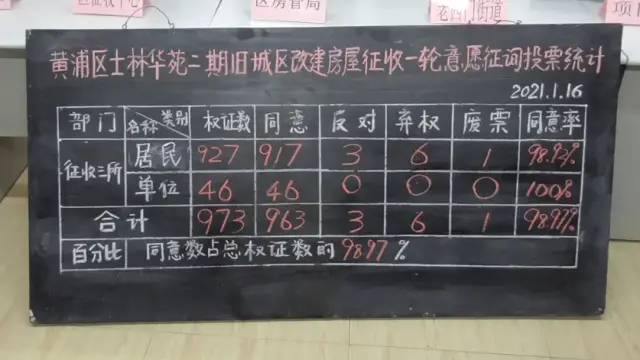 区房管局
老西门街道
黄浦区士林华苑二期旧城区改建房屋征收一轮意愿征询投票统计
2021.1.16
部门 名称 类别 权证数 同意 反对 弃权 废票 同意率
征收三所 居民 927 917 3 6 1 98.92%
单位 46 46 0 0 0 100%
合计 973 963 3 6 1 98.97%
百分比 同意数占总权证数的 98.97 %